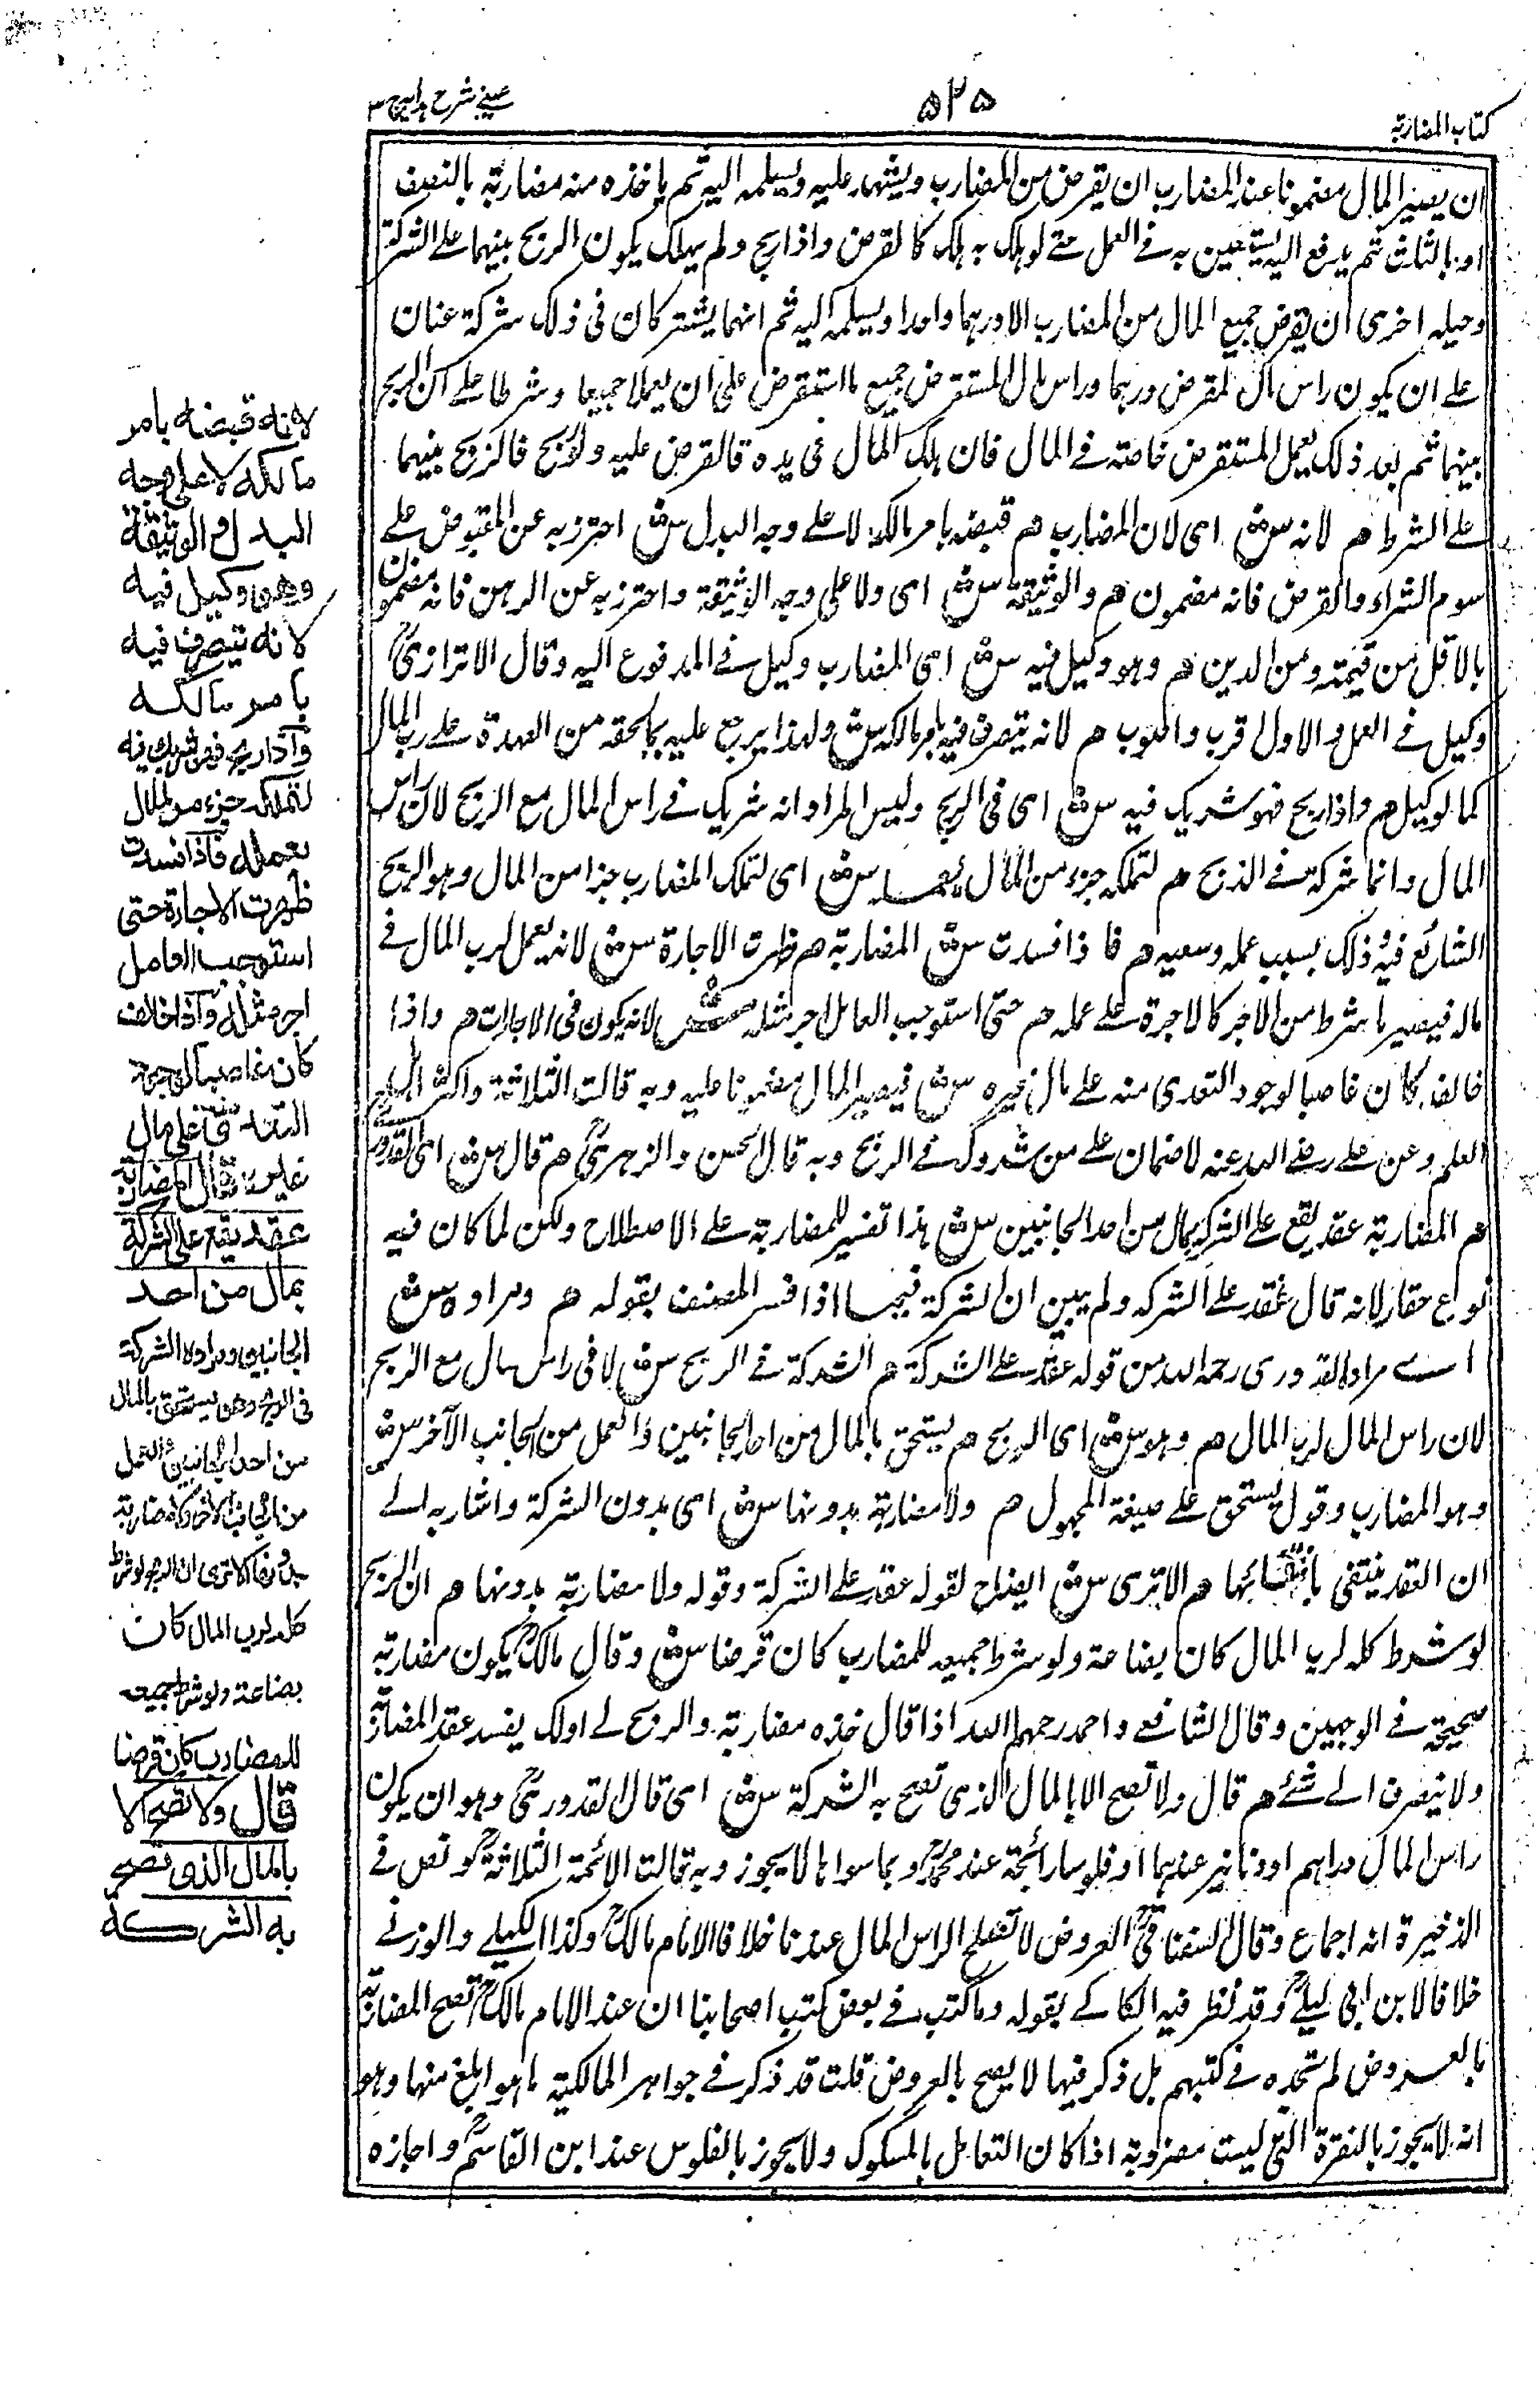 كتاب المضاربة
۵۲۵
عيني شرح هدايه ج ٣
ان يصير المال مضمونا عند المضارب ان يقرض من المضارب ويشهد عليه ويسلمه اليه ثم ياخذه منه مضاربة بالنصف
او بالثلث ثم يدفع اليه يستعين به في العمل حتى لو هلك به هلك كالقرض واذا ربح ولم يهلك يكون الربح بينهما على الشركة
وحيلة اخرى ان يقرض جميع المال من المضارب الا درهما واحدا ويسلمه اليه ثم انهما يشتركان في ذلك شركة عنان
على ان يكون راس مال المقرض درهما وراس مال المستقرض جميع ما استقرض على ان يعملا جميعا وشرطا على ان الربح
بينهما ثم بعد ذلك يعمل المستقرض خاصة في المال فان هلك المال في يده فالقرض عليه ولو ربح فالربح بينهما
على الشرط هم لانه سش اى لان المضارب هم قبضه بامر مالكه لا على وجه البدل سش احترز به عن المقبوض على
سوم الشراء والقرض فانه مضمون هم والوثيقة سش اى ولا على وجه الوثيقة واحترز به عن الرهن فانه مضمون
بالاقل من قيمته ومن الدين هم وهو وكيل فيه سش اى المضارب وكيل في المدفوع اليه وقال الاترازى
وكيل في العمل والاول اقرب واصوب هم لانه يتصرف فيه بامر مالكه سش ولهذا يرجع عليه بما لحقه من العهدة على رب المال
كما لوكيل هم واذا ربح فهو شريك فيه سش اى في الربح وليس المراد انه شريك في راس المال مع الربح لان راس
المال وانما شركة في الربح هم لتملكه جزء من المال بعمله سش اى لتملك المضارب جزا من المال وهو الربح
الشائع فيه وذلك بسبب عمله وسعيه هم فاذا فسدت سش المضاربة هم ظهرت الاجارة سش لانه يعمل لرب المال في
ماله فيصير ما شرط من الاجر كالاجرة على عمله هم حتى استوجب العامل اجر مثله سش لانه يكون في الاجارات هم واذا
خالف كان غاصبا لوجود التعدى منه على مال غيره سش فيصير المال مضمونا عليه وبه قالت الثلاثة واكثر اهل
العلم وعن على رضى الله عنه لا ضمان على من شورك في الربح وبه قال الحسن والزهرى هم قال سش اى القدورى
هم المضاربة عقد يقع على الشركة بمال من احد الجانبين سش هذا تفسير للمضاربة على الاصطلاح ولكن لما كان فيه
نوع خفاء لانه قال عقد على الشركة ولم يبين ان الشركة فيما اذا فسر المصنف بقوله هم ومراده سش
اى مراد القدورى رحمه الله من قوله عقد على الشركة هم الشركة في الربح سش لا في راس مال مع الربح
لان راس المال لرب المال هم وهو سش اى الربح هم يستحق بالمال من احد الجانبين والعمل من الجانب الآخر سش
وهو المضارب وقوله يستحق على صيغة المجهول هم ولا مضاربة بدونها سش اى بدون الشركة واشار به الى
ان العقد ينتفى بانتفائها هم الا ترى سش ايضاح لقوله عقد على الشركة وقوله ولا مضاربة بدونها هم ان الربح
لو شرط كله لرب المال كان بضاعة ولو شرط جميعه للمضارب كان قرضا سش وقال مالك يكون مضاربة
صحيحة في الوجهين وقال الشافعى واحمد رحمهما الله اذا قال خذه مضاربة والربح لى او لك يفسد عقد المضاربة
ولا ينصرف الى شئ هم قال ولا تصح الا بالمال الذى تصح به الشركة سش اى قال القدورى وهو ان يكون
راس المال دراهم او دنانير عندهما او فلوسا رائجة عند محمد وبما سواها لا يجوز وبه قالت الائمة الثلاثة ونص في
الذخيرة انه اجماع وقال السغناقى العروض لا تصلح لراس المال عندنا خلافا للامام مالك وكذا الكيلى والوزنى
خلافا لابن ابى ليلى وقد نظر فيه الكاكى بقوله وما كتب في بعض كتب اصحابنا ان عند الامام مالك تصح المضاربة
بالعروض لم نجده في كتبهم بل ذكر فيها لا يصح بالعروض قلت قد ذكر في جواهر المالكية ما هو ابلغ منها وهو
انه لا يجوز بالنقرة التى ليست مضروبة اذا كان التعامل بالمسكوك ولا يجوز بالفلوس عند ابن القاسم واجازه
لانه قبضه بامر
مالكه لا على وجه
البدل والوثيقة
وهو وكيل فيه
لانه يتصرف فيه
بامر مالكه
واذا ربح فهو شريك فيه
لتملكه جزء من المال
بعمله فاذا فسدت
ظهرت الاجارة حتى
استوجب العامل
اجر مثله واذا خالف
كان غاصبا لوجود
التعدى منه على مال
غيره قال المضاربة
عقد يقع على الشركة
بمال من احد
الجانبين ومراده الشركة
فى الربح وهو يستحق بالمال
من احد الجانبين والعمل
من الجانب الآخر ولا مضاربة
بدونها الا ترى ان الربح لو شرط
كله لرب المال كان
بضاعة ولو شرط جميعه
للمضارب كان قرضا
قال ولا تصح الا
بالمال الذى تصح
به الشركة